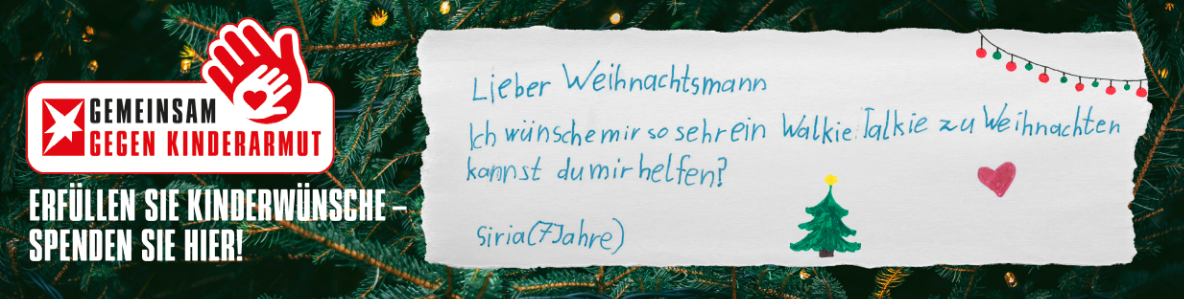 GEMEINSAM
GEGEN KINDERARMUT
ERFÜLLEN SIE KINDERWÜNSCHE –
SPENDEN SIE HIER!
Lieber Weihnachtsmann
Ich wünsche mir so sehr ein Walkie Talkie zu Weihnachten
kannst du mir helfen?
Siria (7 Jahre)